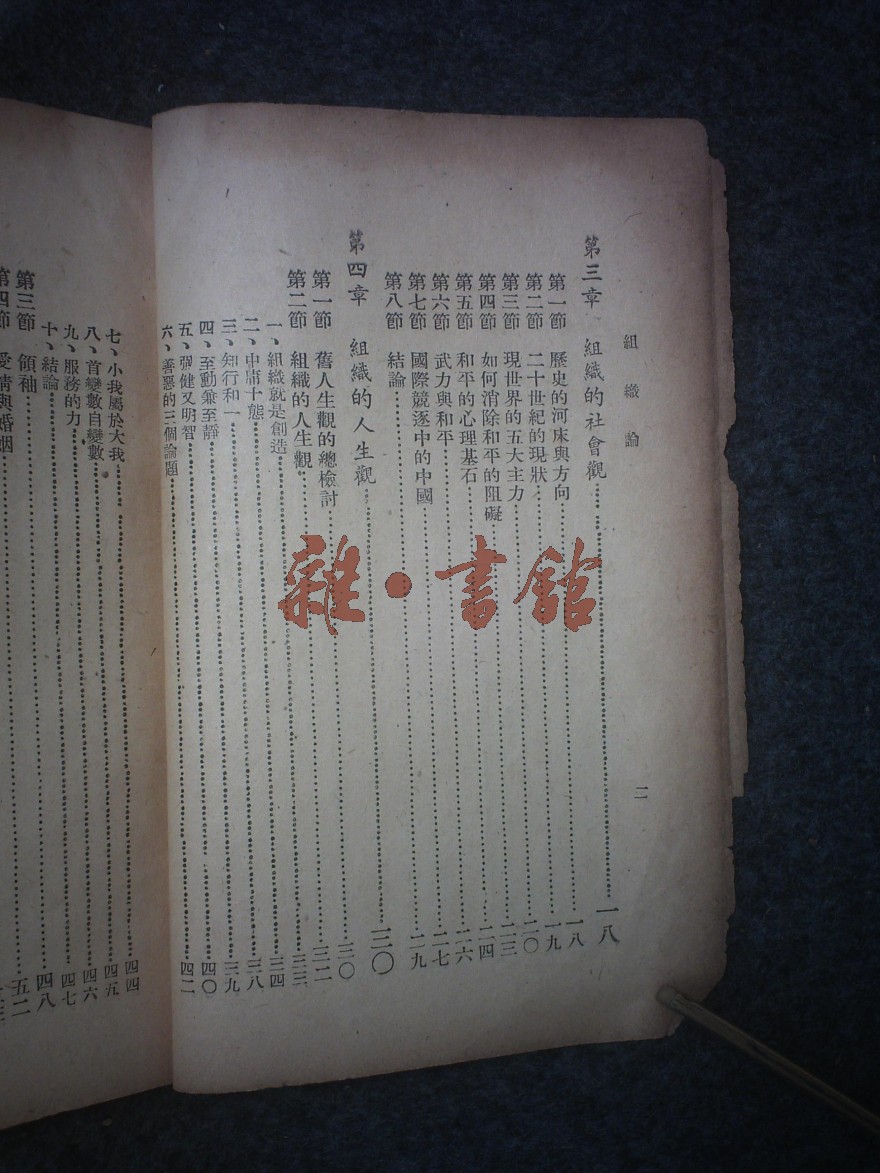 組織論
二
第三章 組織的社會觀……一八
第一節 歷史的河床與方向……一八
第二節 二十世紀的現狀……一九
第三節 現世界的五大主力……二〇
第四節 如何消除和平的阻礙……二三
第五節 和平的心理基石……二四
第六節 武力與和平……二六
第七節 國際競逐中的中國……二七
第八節 結論……二九
第四章 組織的人生觀……三〇
第一節 舊人生觀的總檢討……三〇
第二節 組織的人生觀……三二
一、組織就是創造……三三
二、中庸十態……三四
三、知行和一……三八
四、至動兼至靜……三九
五、強健又明智……四〇
六、善惡的三個論題……四二
七、小我屬於大我……四四
八、首變數自變數……四五
九、服務的力……四六
十、結論……四七
第三節 領袖……四八
第四節 愛情與婚姻……五二
雜·書館